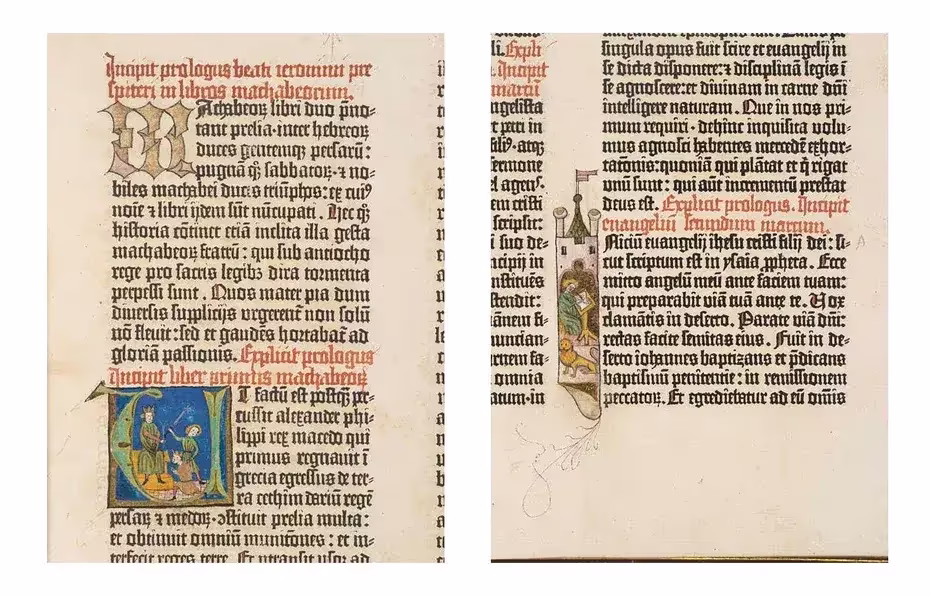 Incipit prologus beati ieronimi pre-
sbiteri in libros machabeorum.
Machabeorꝝ libri duo p̄no-
tant prelia·inter hebreorꝝ
duces gentemqꝫ persarū:
pugnā qꝫ sabbatorꝝ·⁊ no-
biles machabei ducis triūphos: ex cuiꝰ
noīe ⁊ libri ijdem sūt nūcupati. Hec qꝫ
historia cōtinet etiā inclita illa gesta
machabeorꝝ fratrū: qui sub antiocho
rege pro sacris legibꝫ dira tormenta
perpessi sunt. Quos mater pia dum
diversis supplicijs urgerent̄ non solū
nō flevit: sed et gaudēs hortabat̄ ad
gloriā passionis. Explicit prologus
Incipit liber primus machabeorꝝ
Et factū est postqꝫ per-
cussit alexander phi-
lippi rex macedo qui
primus regnavit ī
grecia egressus de ter-
ra cethim dariū regē
persarꝝ ⁊ medorꝝ·ꝯstituit prelia multa:
et obtinuit omniū munitōnes: et in-
terfecit reges terre. Et ptransiit usqꝫ ad
li. Expli
Incipit
marcū
ngelista
t petri in
filiꝰ·atqꝫ
sermone
l agensꝰ.
em cristi
scripsit:
i suo de-
incipij in
nstituēs
stendit:
inem fi-
nuncian-
rnem fa-
omnia
atum·in
singula opus fuit scire et euangelij in
se dicta disponere: ⁊ disciplinā legis ī
se agnoscere: et divinam in carne dn̄i
intelligere naturam. Que in nos pri-
mum requiri·dehinc inquisita volu-
mus agnosci habentes mercedē exhor-
tatōnis: quoniā qui plātat et q̄ rigat
unū sunt: qui aūt incrementū prestat
deus est. Explicit prologus. Incipit
euangeliū secundum marcum.
INiciū euangelij ihesu cristi filij dei: si-
cut scriptum est in ysaia ꝓpheta. Ecce
mitto angelū meū ante faciem tuam:
qui preparabit viā tuā ante te. Vox
clamātis in deserto. Parate viā dn̄i:
rectas facite semitas eius. Fuit in de-
serto iohannes baptizans et p̄dicans
baptismū penitentie: in remissionem
peccatorꝝ. Et egrediebatur ad eū om̄is